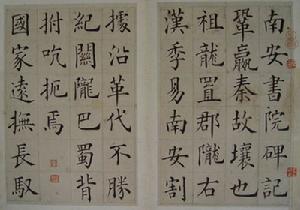 南安書院碑記
鞏嬴秦故壤也
祖龍置郡隴右
漢季易南安割
據沿革代不勝
紀關隴巴蜀背
拊吭扼焉
國家遠撫長馭